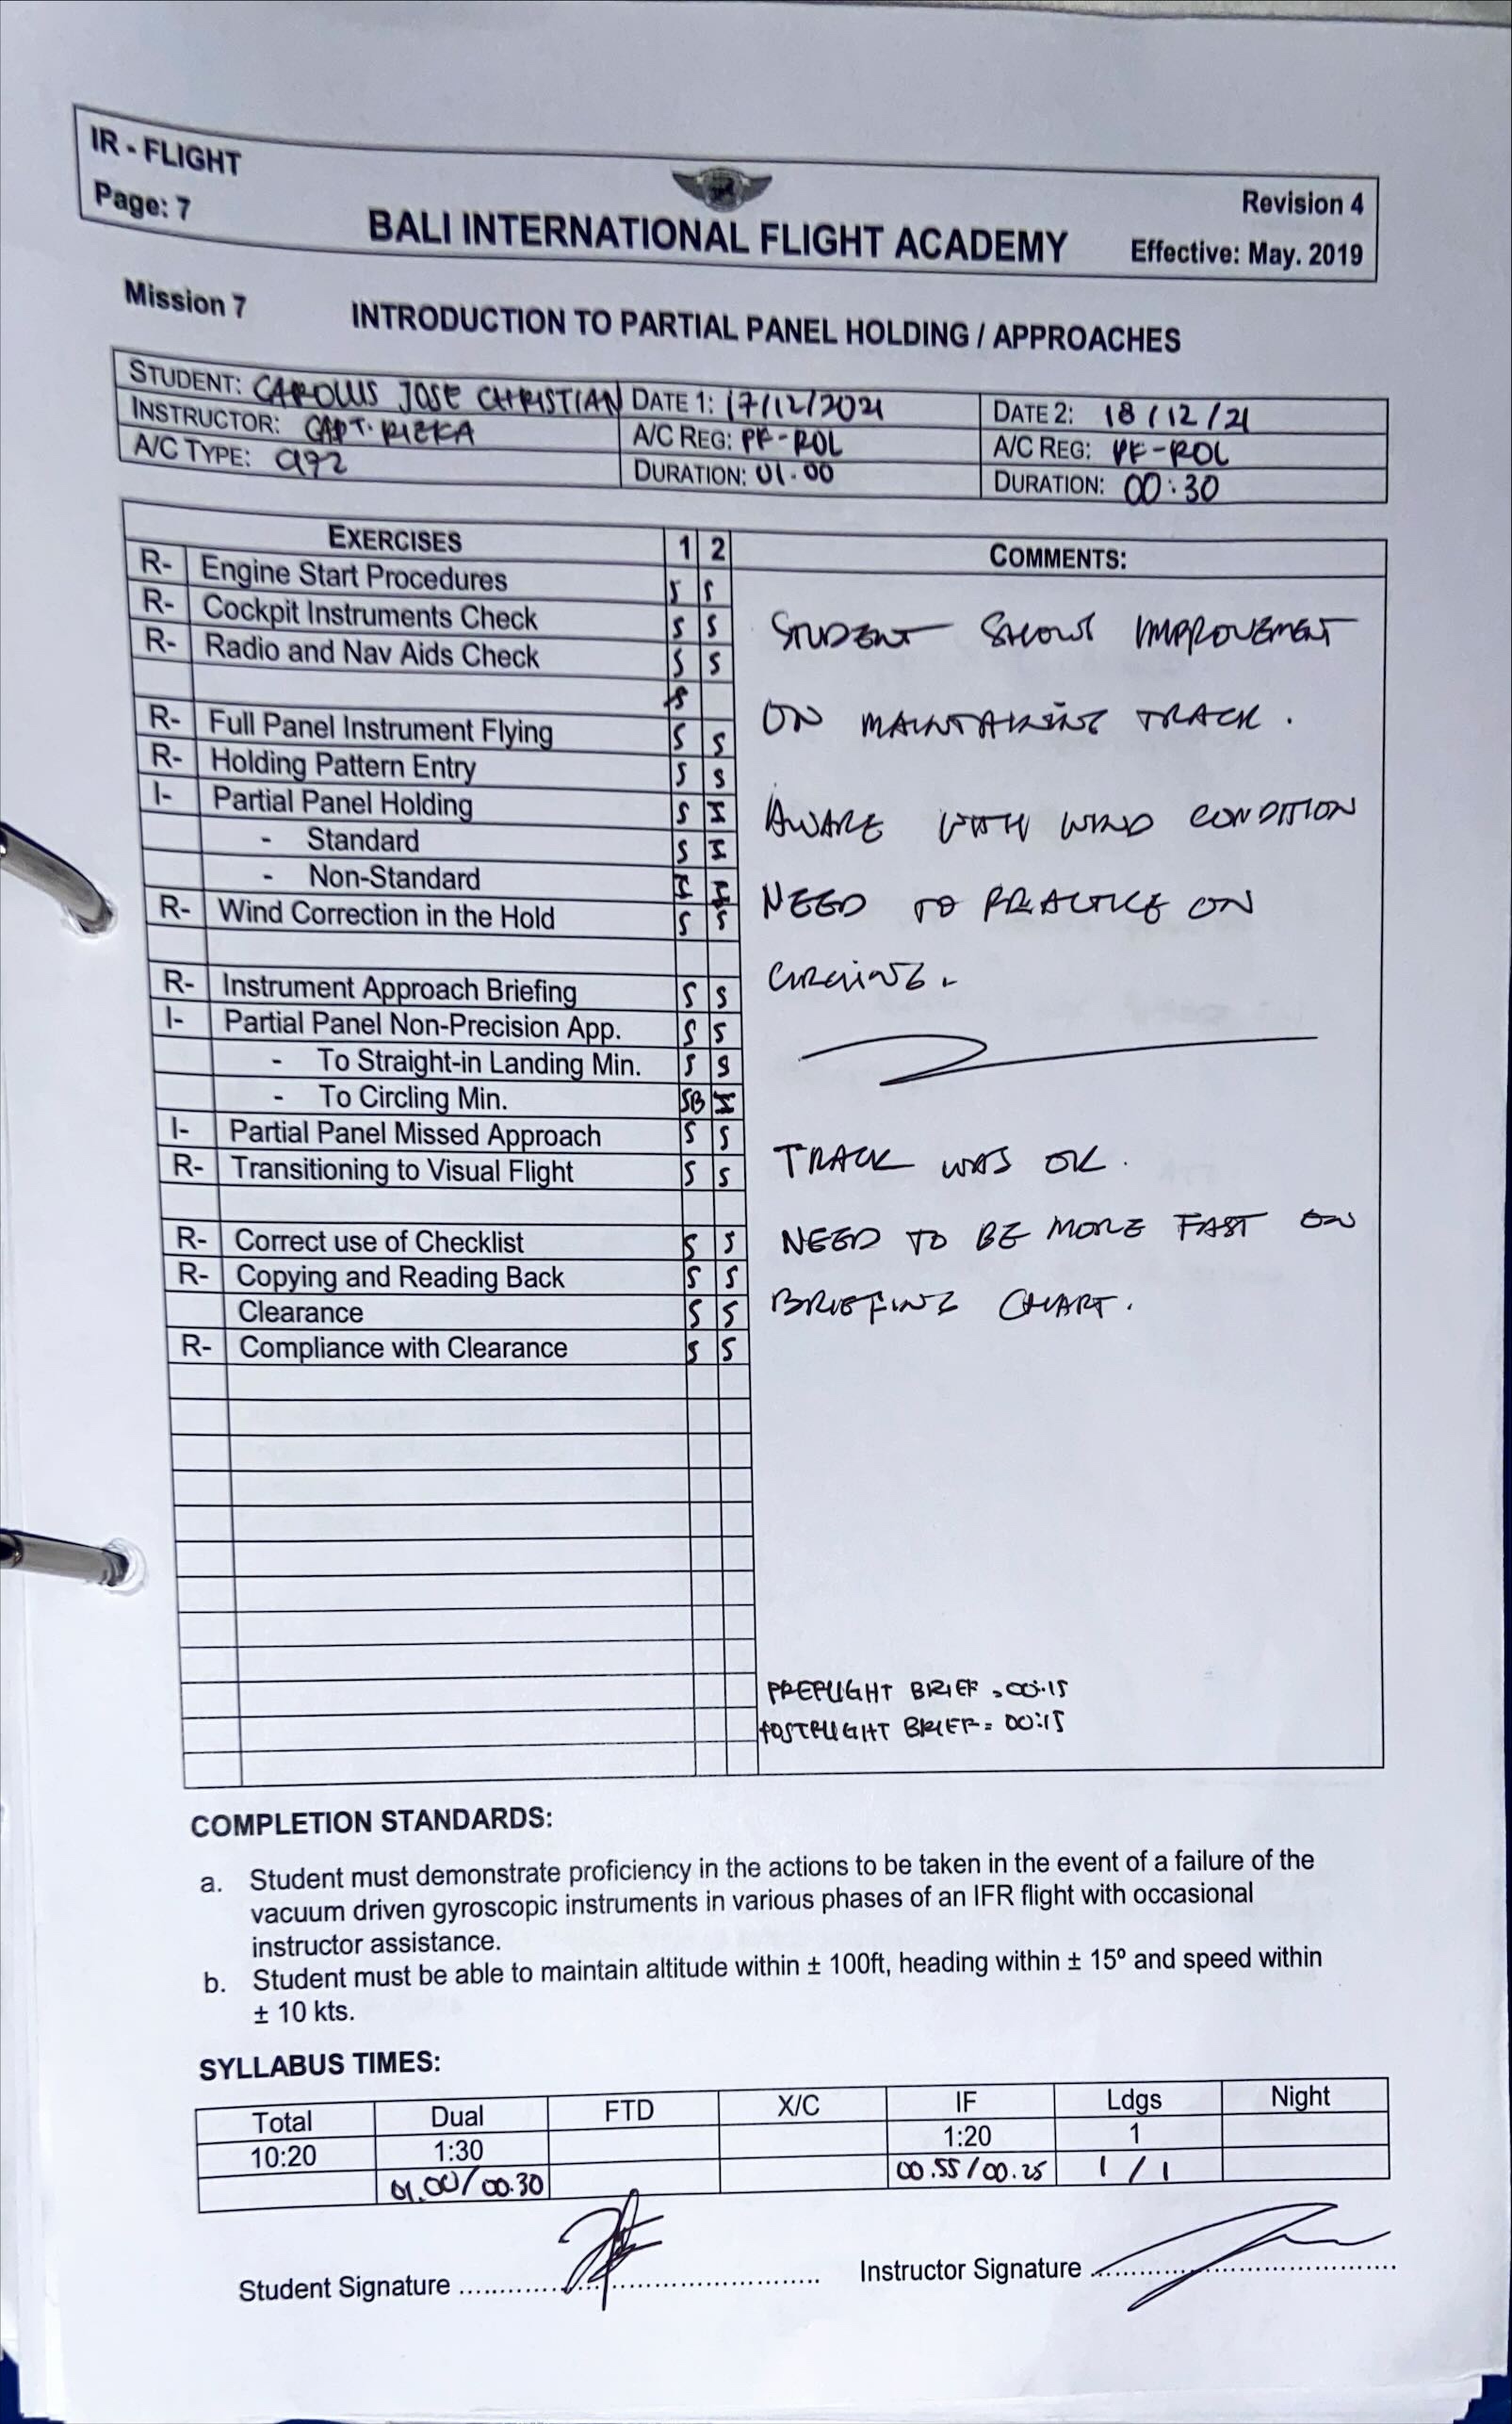 IR - FLIGHT
Page: 7
BALI INTERNATIONAL FLIGHT ACADEMY
Revision 4
Effective: May. 2019
Mission 7 INTRODUCTION TO PARTIAL PANEL HOLDING / APPROACHES
STUDENT: CAROLUS JOSE CHRISTIAN DATE 1: 17/12/2021 DATE 2: 18/12/21
INSTRUCTOR: CAPT. RIZKA A/C REG: PK-ROL A/C REG: PK-ROL
A/C TYPE: C192 DURATION: 01.00 DURATION: 00:30
EXERCISES 1 2 COMMENTS:
R- Engine Start Procedures S S
R- Cockpit Instruments Check S S
R- Radio and Nav Aids Check S S
R- Full Panel Instrument Flying S S
R- Holding Pattern Entry S S
I- Partial Panel Holding S I
- Standard S I
- Non-Standard I I
R- Wind Correction in the Hold S S
R- Instrument Approach Briefing S S
I- Partial Panel Non-Precision App. S S
- To Straight-in Landing Min. S S
- To Circling Min. SB I
I- Partial Panel Missed Approach S S
R- Transitioning to Visual Flight S S
R- Correct use of Checklist S S
R- Copying and Reading Back S S
Clearance S S
R- Compliance with Clearance S S
STUDENT SHOWS IMPROVEMENT
ON MAINTAINING TRACK.
AWARE WITH WIND CONDITION
NEED TO PRACTICE ON
CIRCLING.
TRACK WAS OK.
NEED TO BE MORE FAST ON
BRIEFING CHART.
PREFLIGHT BRIEF = 00:15
POSTFLIGHT BRIEF = 00:15
COMPLETION STANDARDS:
a. Student must demonstrate proficiency in the actions to be taken in the event of a failure of the
vacuum driven gyroscopic instruments in various phases of an IFR flight with occasional
instructor assistance.
b. Student must be able to maintain altitude within ± 100ft, heading within ± 15º and speed within
± 10 kts.
SYLLABUS TIMES:
Total Dual FTD X/C IF Ldgs Night
10:20 1:30 1:20 1
01.00/00.30 00.55/00.25 1/1
Student Signature .......... Instructor Signature ..........